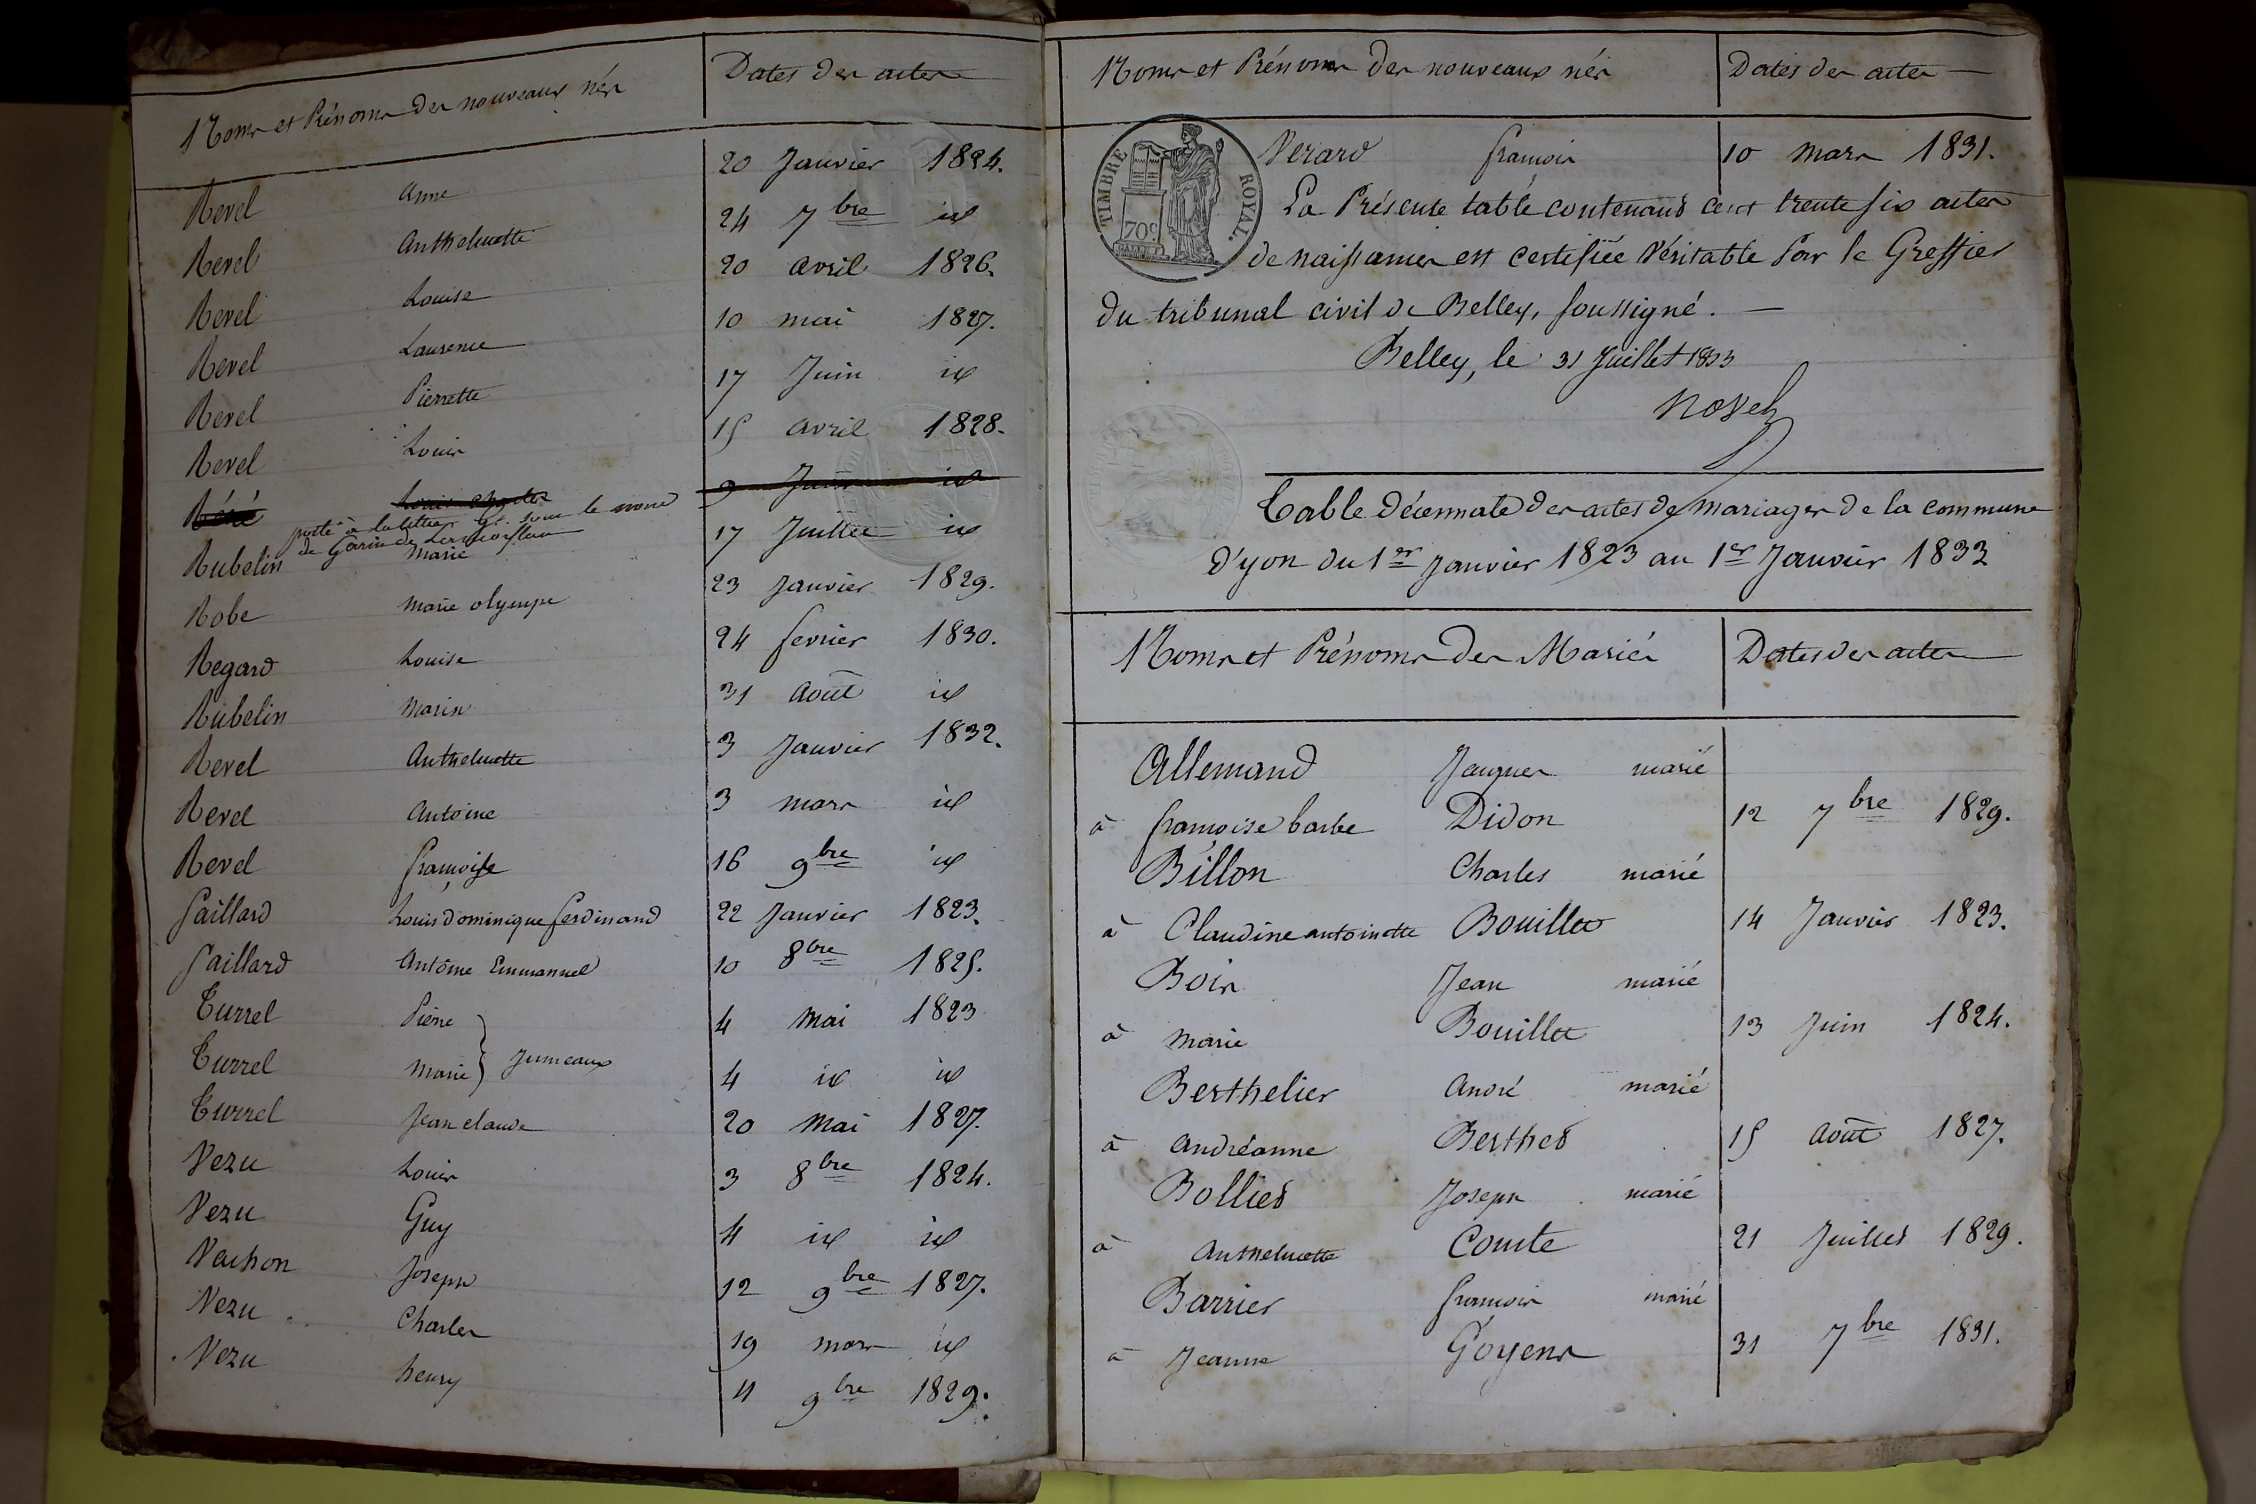 Noms et Prénoms des nouveaux nés Dates des actes
Revel Anne 20 Janvier 1824.
Revel Anthelmette 24 7bre id
Revel Louise 20 avril 1826.
Revel Laurence 10 mai 1827.
Revel Pierrette 17 Juin id
Revel Louis 15 avril 1828.
Réné Louis Charles 9 Juin id
porté à la lettre G. sous le nom
de Garin de
Rubelin Marie 17 Juillet id
Robe Marie olympe 23 Janvier 1829.
Regard Louise 24 fevrier 1830.
Rubelin Marin 31 Août id
Revel Anthelmette 3 Janvier 1832.
Revel Antoine 3 mars id
Revel françoise 16 9bre id
Saillard Louis dominique ferdinand 22 Janvier 1823.
Saillard Antoine Emmanuel 10 8bre 1825.
Turrel Pierre 4 Mai 1823
Turrel Marie } Jumeaux 4 id id
Turrel Jean claude 20 Mai 1827.
Vezu Louis 3 8bre 1824.
Vezu Guy 4 id id
Vachon Joseph 12 9bre 1827.
Vezu Charles 19 mars id
Vezu henry 11 9bre 1829.
Noms et Prénoms des nouveaux nés Dates des actes
TIMBRE ROYAL.
70c
Verard françois 10 mars 1831.
La Présente table contenant cent trente six actes
de naissances est certifiée Véritable par le Greffier
du tribunal civil de Belley, soussigné. —
Belley, le 31 Juillet 1833
Table décennale des actes de mariages de la commune
d'yon du 1er Janvier 1823 au 1er Janvier 1833
Noms et Prénoms des Mariés Dates des actes
Allemand Jacques marié
à françoise barbe Didon 12 7bre 1829.
Billon Charles marié
à Claudine antoinette Bouillet 14 Janvier 1823.
Bois Jean marié
à Marie Bouillet 13 Juin 1824.
Berthelier André marié
à Andréanne Berthet 15 Août 1827.
Bolliet Joseph marié
à Anthelmette Comte 21 Juillet 1829.
Barrier françois marié
à Jeanne Goyens 31 7bre 1831.